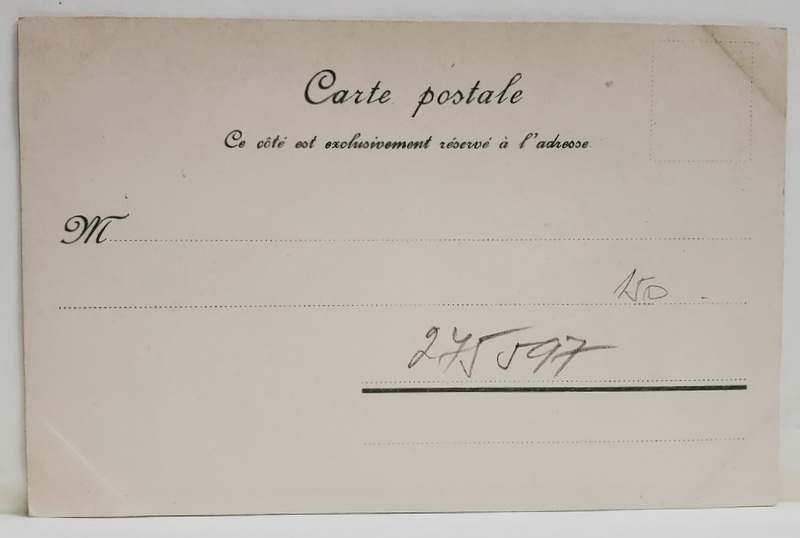 Carte postale
Ce côté est exclusivement réservé à l'adresse
M
150
275597